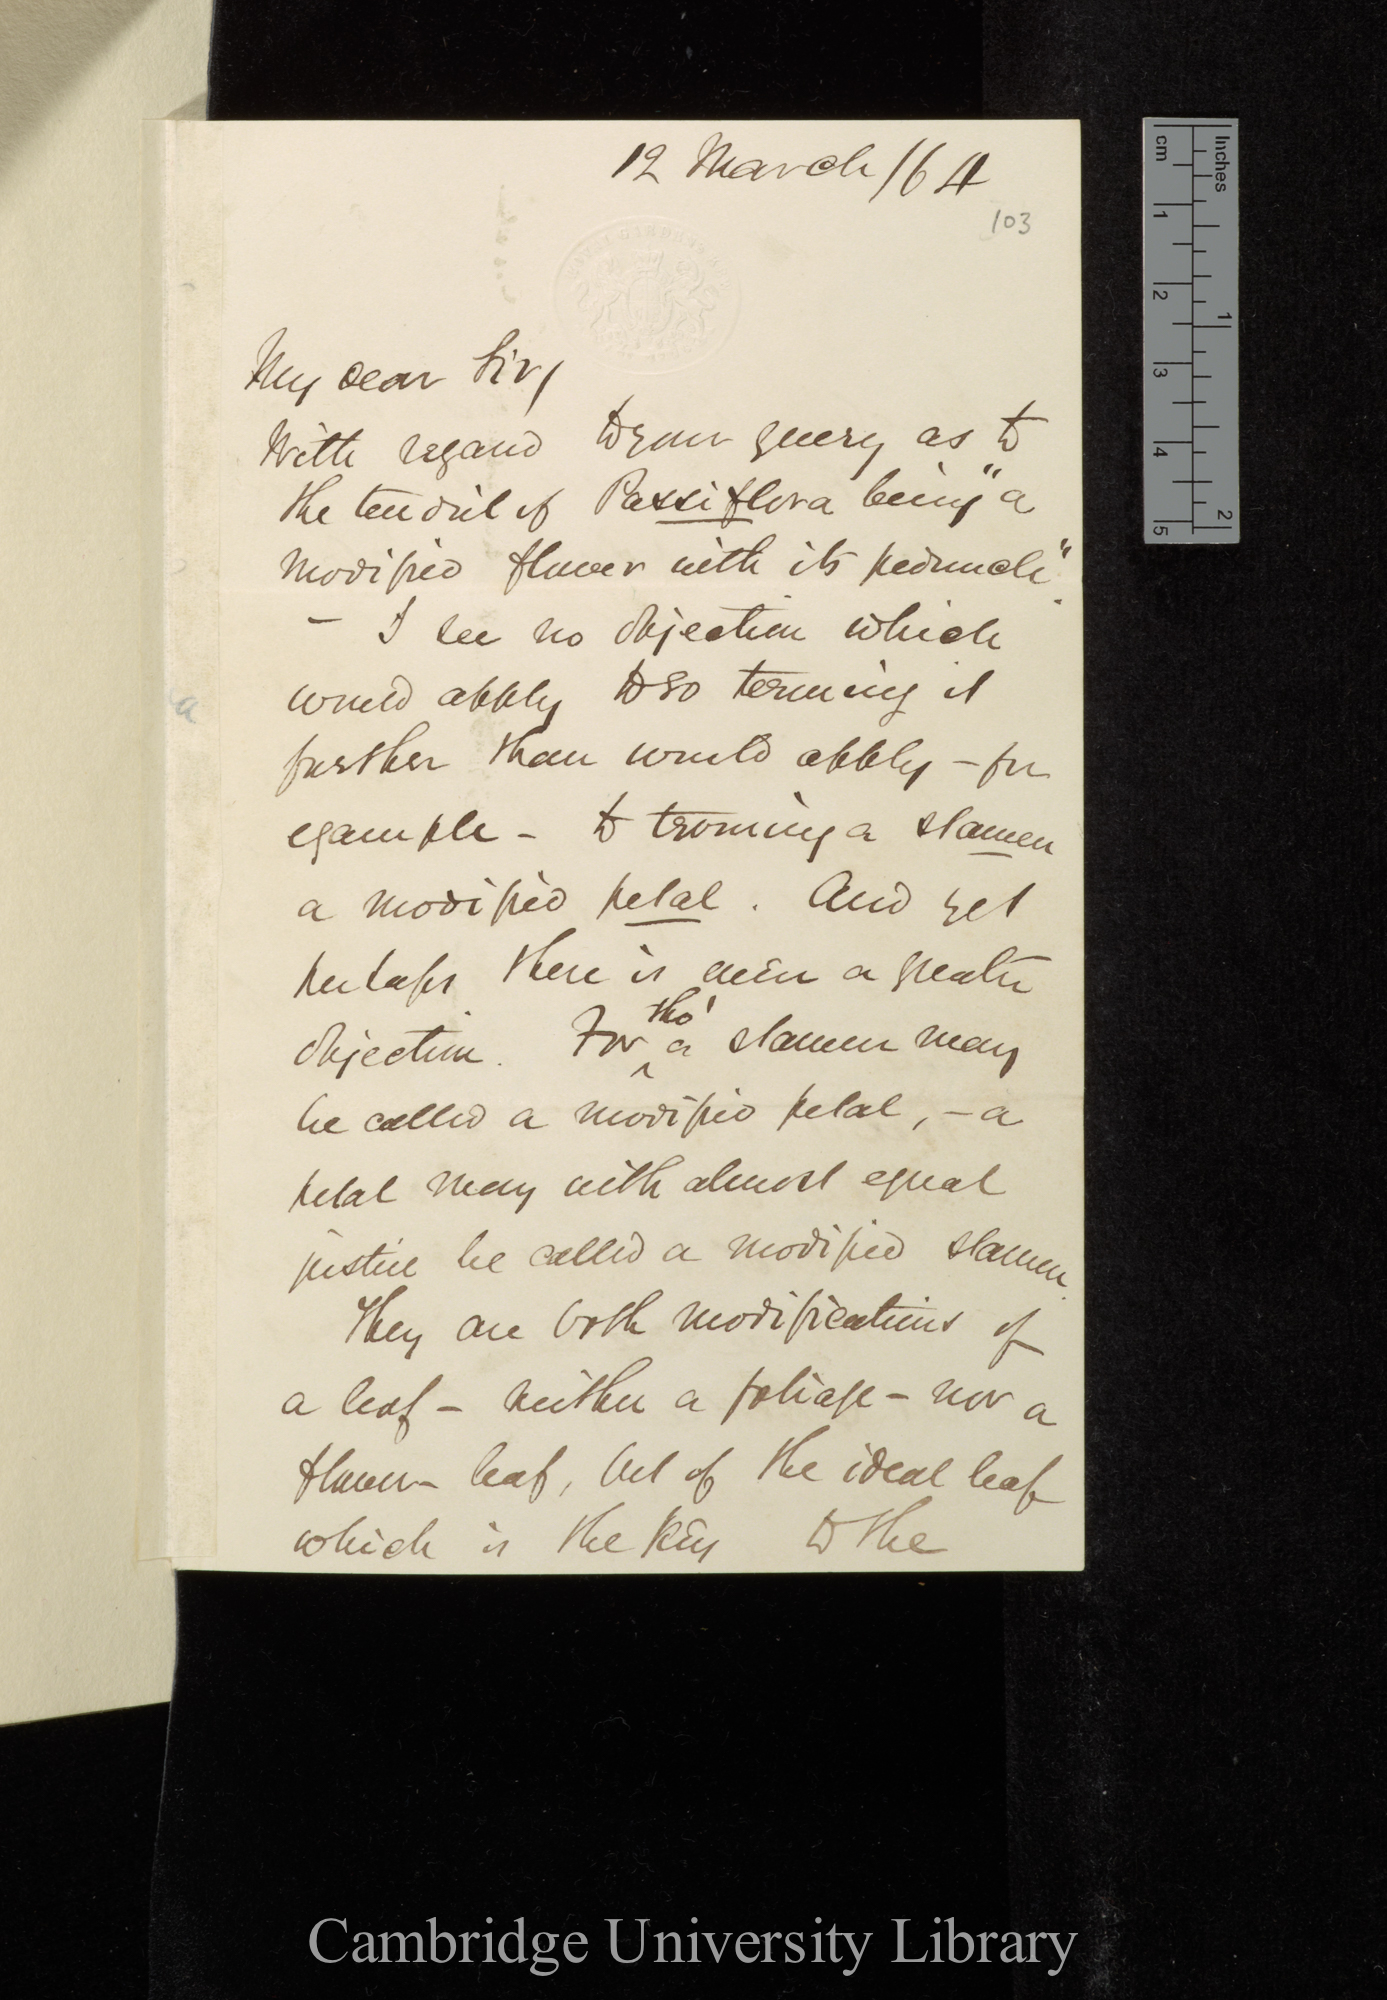 12 March /64
103
My dear Sir,
With regard to your query as to
the tendril of Passiflora being "a
modified flower with its peduncle".
— I see no objection which
would apply to so terming it
further than would apply — for
example — to terming a stamen
a modified petal. And yet
perhaps there is even a greater
objection. For tho' a stamen may
be called a modified petal, — a
petal may with almost equal
justice be called a modified stamen.
They are both modifications of
a leaf — neither a foliage — nor a
flower-leaf, but of the ideal leaf
which is the key to the
Inches
cm
1
2
3
4
5
1
2
Cambridge University Library